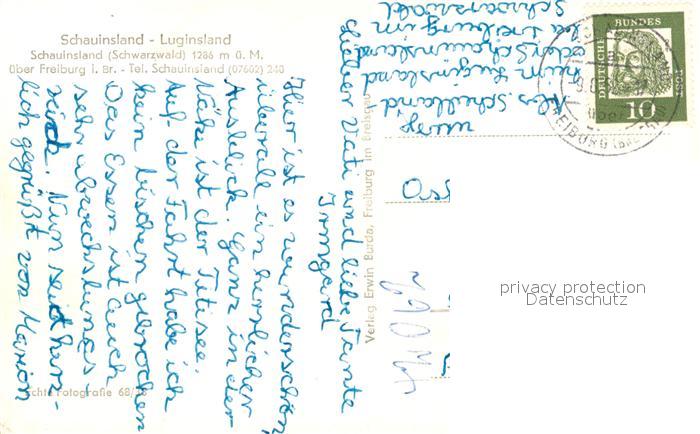 Schauinsland - Luginsland
Schauinsland (Schwarzwald) 1286 m ü. M.
über Freiburg i. Br. - Tel. Schauinsland (07602) 248
Lieber Vati und liebe Tante
Irmgard
Hier ist es wunderschön
überall ein herrlicher
Ausblick. Ganz in der
Nähe ist der Titisee.
Auf der Fahrt habe ich
kein bischen gebrochen
Das Essen ist auch
sehr abwechslungs-
reich. Nun seid herz-
lich gegrüßt von Marion
Echte Fotografie 68/
Verlag Erwin Burda, Freiburg im Breisgau
Luginsland
Schauinsland
Freiburg im
Schwarzwald
DEUTSCHE BUNDESPOST
10
FREIBURG
privacy protection
Datenschutz